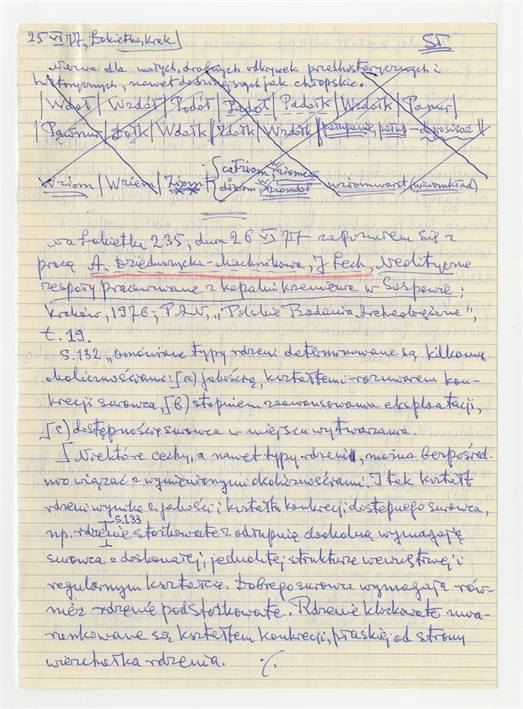 25 VI 77, Łokietka, Krak.] ST
Nazwa dla małych, drobnych odkrywek prehistorycznych i
historycznych, nawet dzisiejszych jak chłopskie.
| Wdoł | Wzdół | Podół | Padół | Padołk | Wzdołk |
| Dołk | Wdołk | Zdołk | Wzdołk |
Wziom | Wziera | Ziom
Na Łokietka 235, dnia 26 VI 77 zapoznałem się z
pracą A. Dzieduszycka-Machnikowa, J Lech, Neolityczne
zespoły pracowniane z kopalni krzemienia w Sąspowie;
Kraków, 1976; PAN, "Polskie Badania Archeologiczne",
t. 19.
S. 132 "omówione typy rdzeni determinowane są kilkoma
okolicznościami: [a) jakością, kształtem i rozmiarem kon-
krecji surowca, [b) stopniem zaawansowania eksploatacji,
[c) dostępnością surowca w miejscu wytwarzania.
[Niektóre cechy, a nawet typy rdzeni, można bezpośred-
nio wiązać z wymienionymi okolicznościami. I tak kształt
rdzeni wynika z jakości i kształtu konkrecji dostępnego surowca,
S. 133
np. rdzenie stożkowate z odłupnią dookolną wymagają
surowca o doskonałej, jednolitej strukturze wewnętrznej i
regularnym kształcie. Dobrego surowca wymagają rów-
nież rdzenie podstożkowate. Rdzenie klockowate uwa-
runkowane są kształtem konkrecji, płaskiej od strony
wierzchołka rdzenia. ·/.